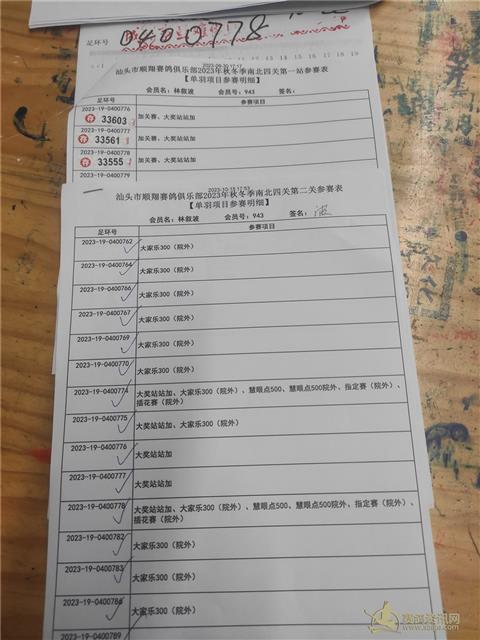 足环号 0400778
17 18 19
2023-09-30 17:17
汕头市顺翔赛鸽俱乐部2023年秋冬季南北四关第一站参赛表
【单羽项目参赛明细】
会员名：林叙波 会员号：943 签名：
足环号 参赛项目
2023-19-0400776
存 33603 加关赛、大奖站站加
2023-19-0400777
存 33561 加关赛、大奖站站加
2023-19-0400778
存 33555 加关赛、大奖站站加
2023-19-0400779
2023-10-15 17:53
汕头市顺翔赛鸽俱乐部2023年秋冬季南北四关第二关参赛表
【单羽项目参赛明细】
会员名：林叙波 会员号：943 签名：波
足环号 参赛项目
2023-19-0400762 大家乐300（院外）
2023-19-0400764 大家乐300（院外）
2023-19-0400766 大家乐300（院外）
2023-19-0400767 大家乐300（院外）
2023-19-0400769 大家乐300（院外）
2023-19-0400770 大家乐300（院外）
2023-19-0400774 大奖站站加、大家乐300（院外）、慧眼点500、慧眼点500院外、指定赛（院外）、
插花赛（院外）
2023-19-0400775 大奖站站加、大家乐300（院外）
2023-19-0400776 大奖站站加
2023-19-0400777 大奖站站加
2023-19-0400778 大奖站站加、大家乐300（院外）、慧眼点500、慧眼点500院外、指定赛（院外）、
插花赛（院外）
2023-19-0400782 大家乐300（院外）
2023-19-0400783 大家乐300（院外）
2023-19-0400786 大家乐300（院外）
2023-19-0400789